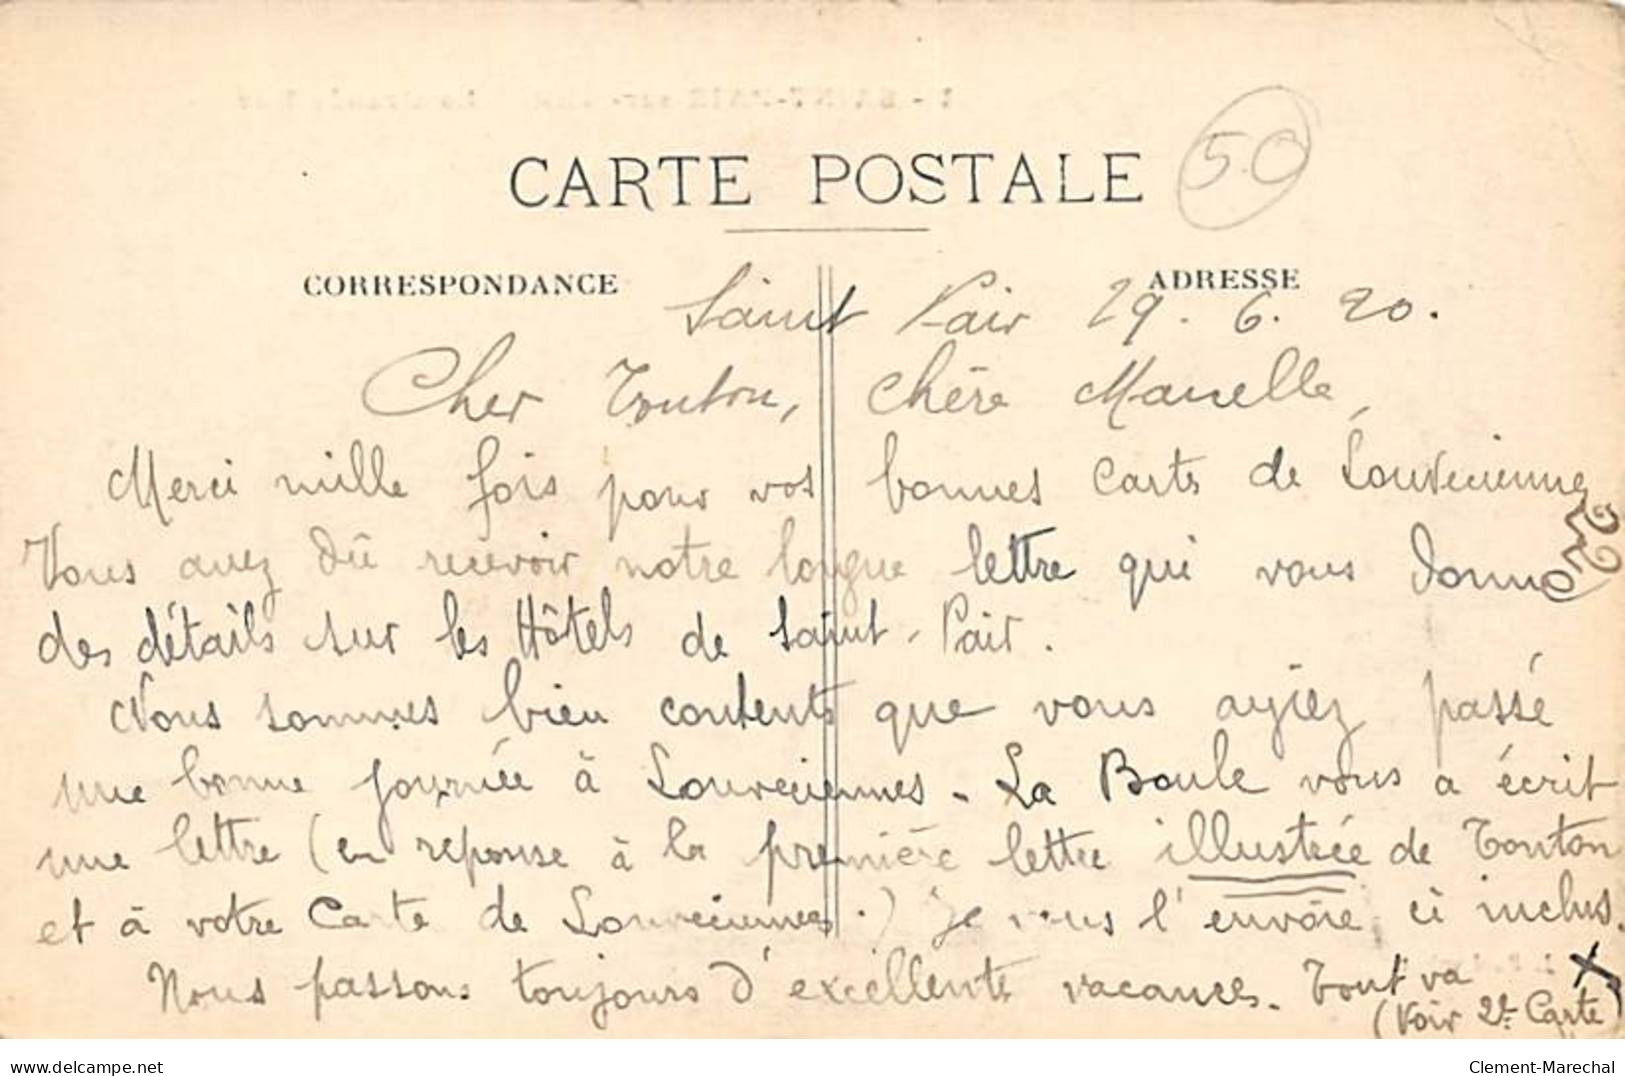 CARTE POSTALE
50
CORRESPONDANCE
ADRESSE
Saint Pair 29. 6. 20.
Cher Tonton, Chère Manelle,
Merci mille fois pour vos bonnes carte de Louveciennes
Vous avez dû recevoir notre longue lettre qui vous donne
des détails sur les Hôtels de Saint-Pair.
Nous sommes bien contents que vous ayiez passé
une bonne journée à Louveciennes - La Boule vous a écrit
une lettre (en réponse à la première lettre illustrée de Tonton
et à votre Carte de Louveciennes.) Je vous l'envoie ci inclus.
Nous passons toujours d'excellente vacances. Tout va
(Voir 2e Carte)
delcampe.net
Clement-Marechal